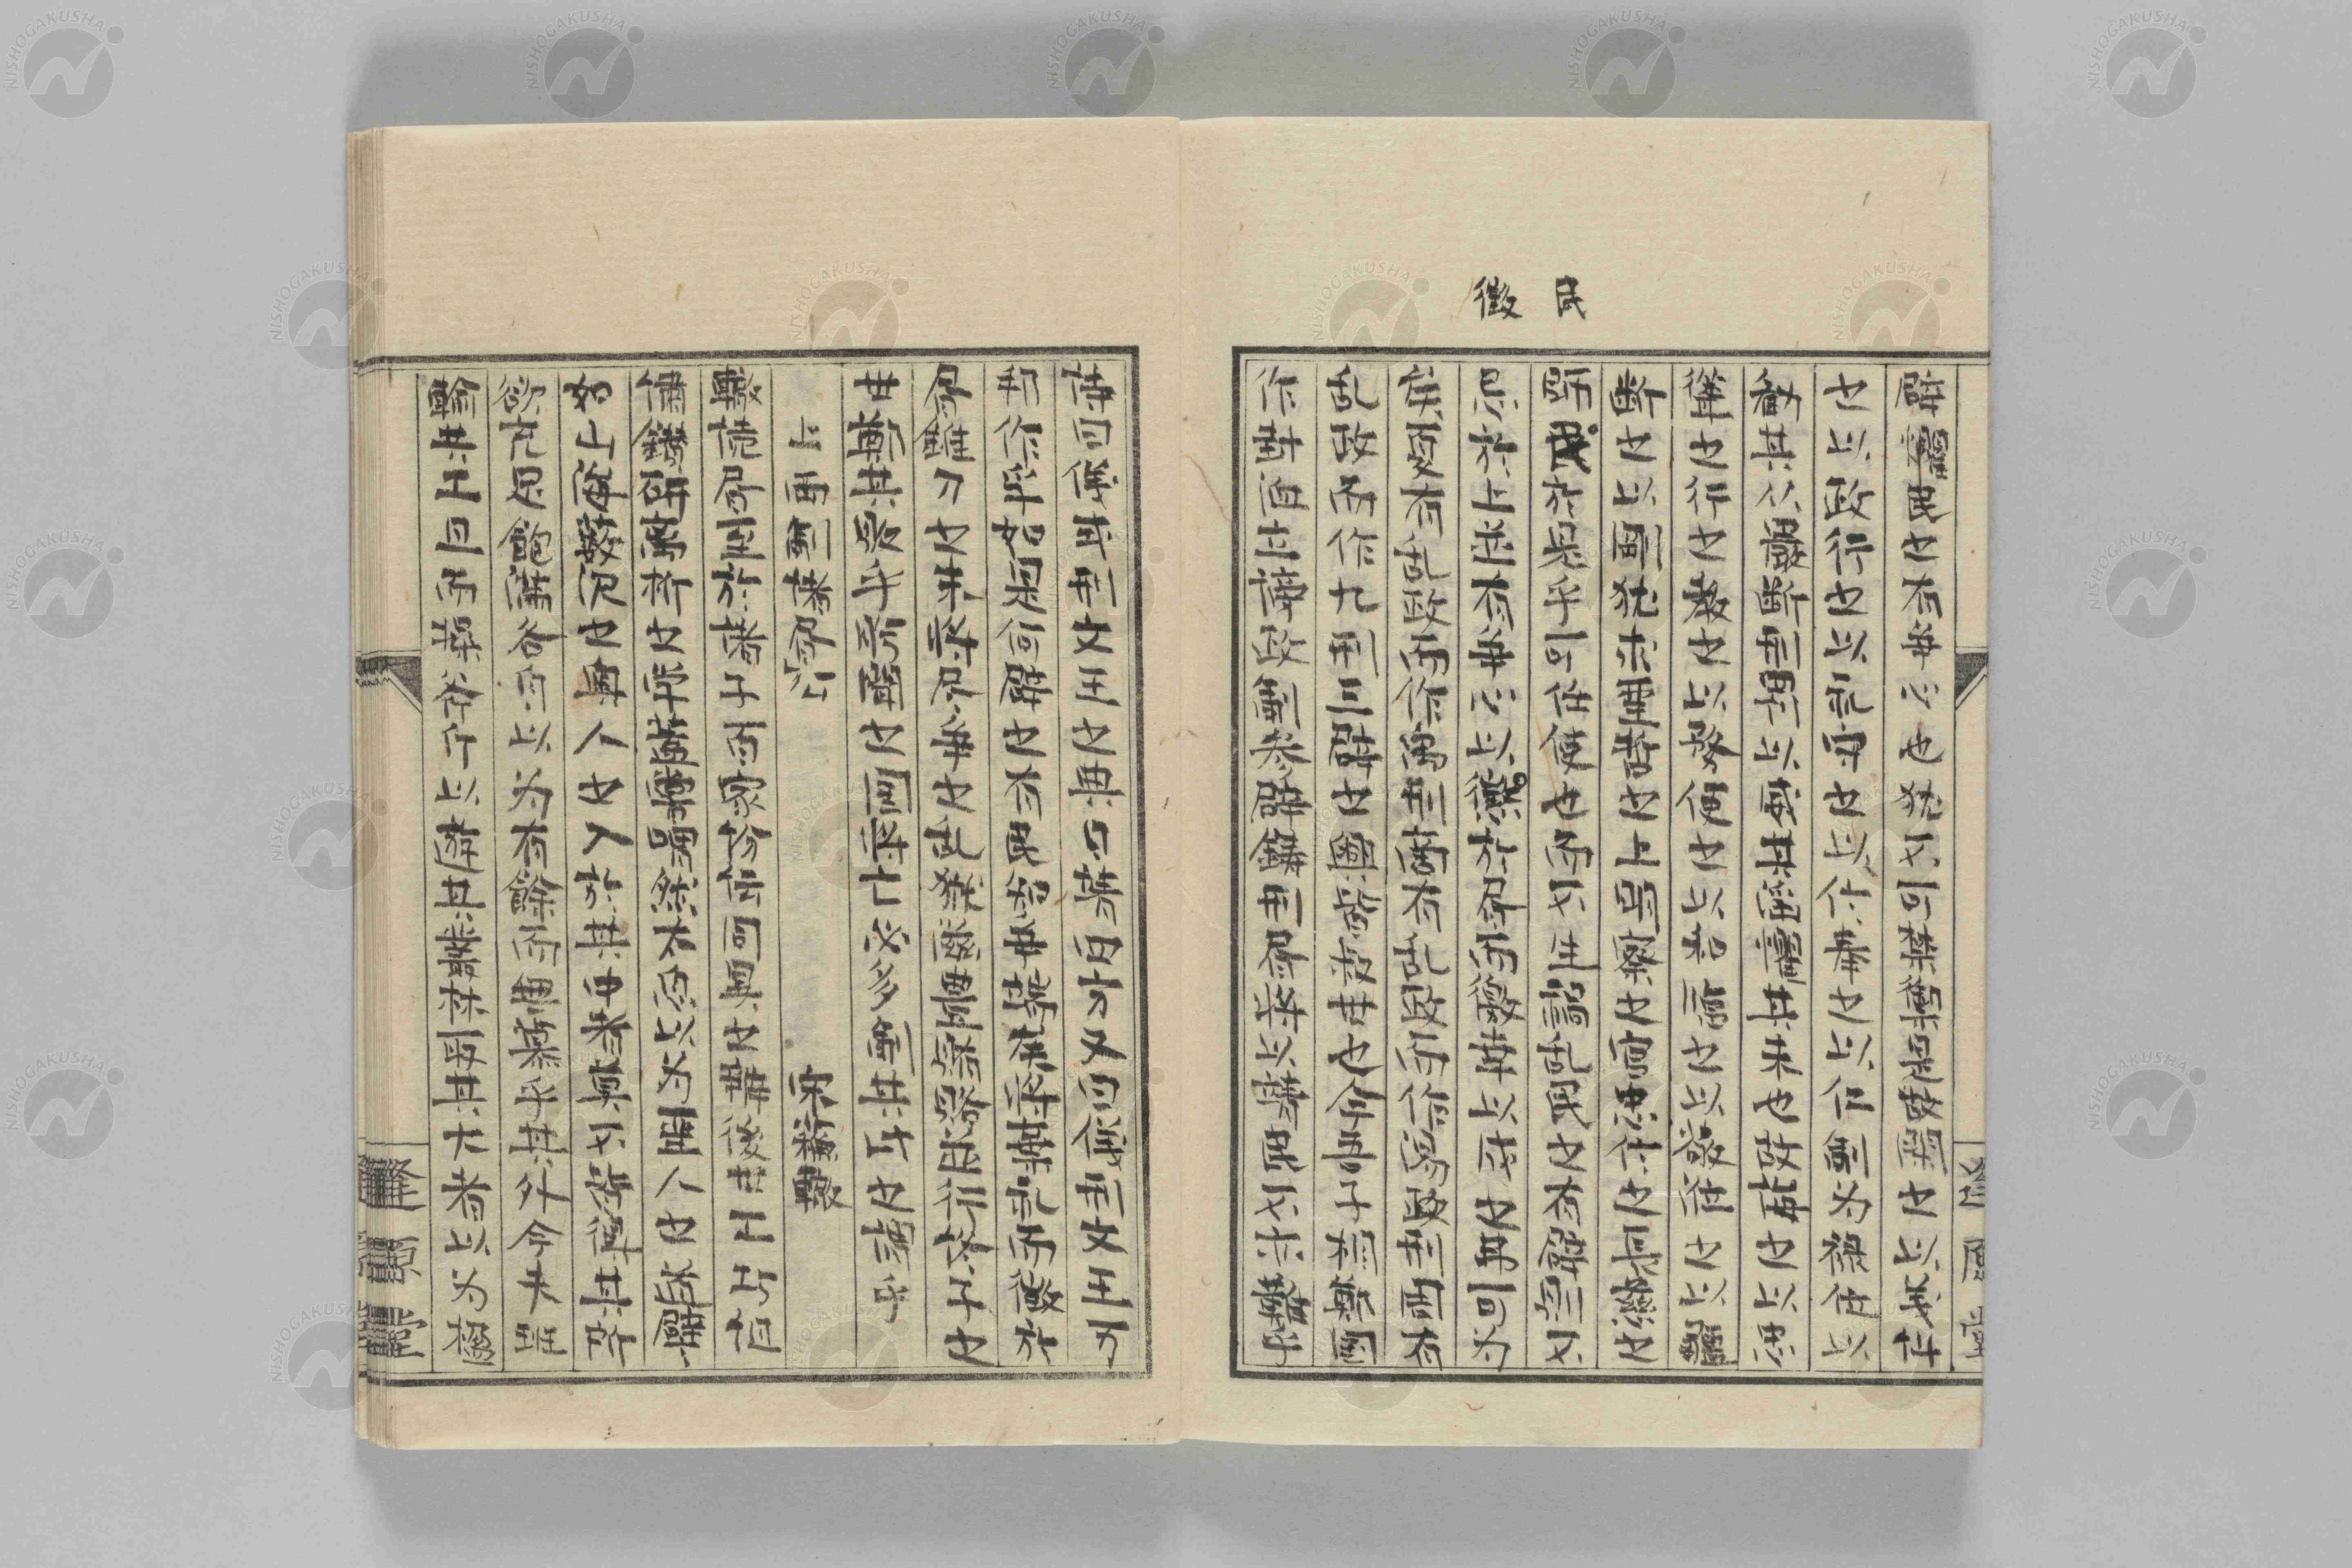 民
徵
辟懼民之有爭心也猶不可禁禦是故閑之以義糾
之以政行之以礼守之以信奉之以仁制為祿位以
勸其從嚴斷刑罰以威其淫懼其未也故誨之以忠
聳之以行教之以務使之以和臨之以敬涖之以彊
斷之以剛猶求聖哲之上明察之官忠信之長慈惠之
師民於是乎可任使也而不生禍乱民之有辟則不
忌於上並有爭心以徵於書而徼幸以成之弗可為
矣夏有乱政而作禹刑商有乱政而作湯政刑周有
乱政而作九刑三辟之興皆叔世也今吾子相鄭國
作封洫立謗政制參辟鑄刑書將以靖民不亦難乎
詩曰儀刑文王之典日靖四方又曰儀刑文王万
邦作孚如是何辟之有民知爭端矣將棄礼而徵於
書錐刀之末將尽爭之乱獄滋豐賄賂並行終子之
世鄭其敗乎肸聞之國將亡必多制其此之謂乎
上兩制諸書公
宋蘇轍
轍讀書至於諸子百家紛紜同異之辯後世工巧組
繡鑽研離析之學蓋嘗喟然太息以為聖人之道譬
如山海藪沢之奧人之入於其中者莫不皆得其所
欲充足飽滿各自以為有餘而無慕乎其外今夫班
輸共工旦而操斧斤以遊其叢林取其大者以為楹